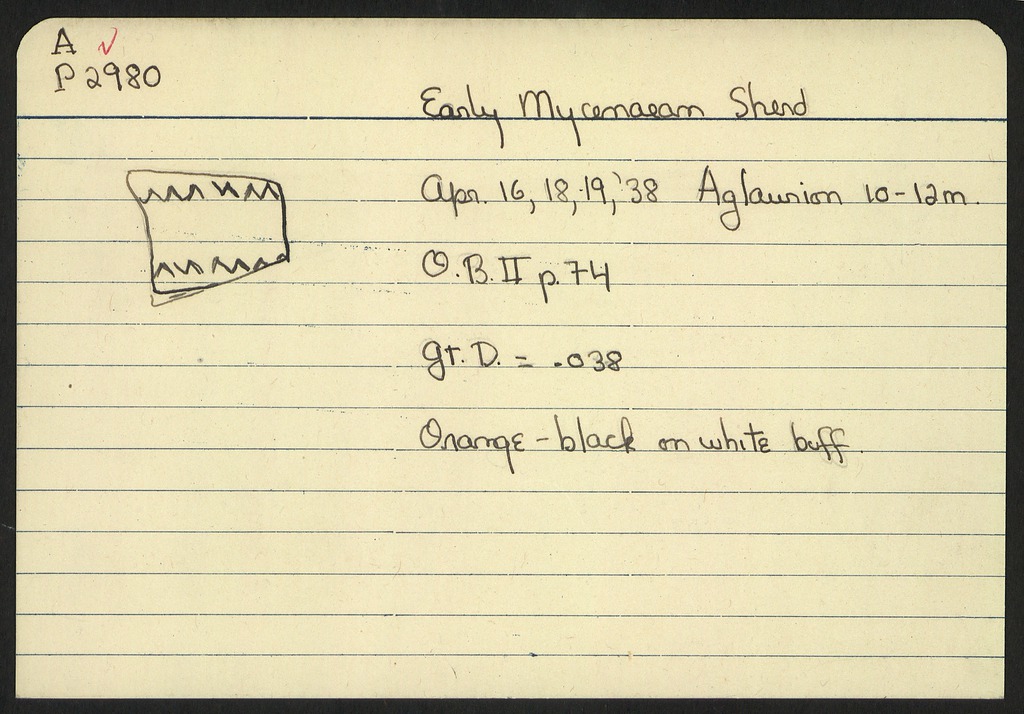 A ✓
P 2980
Early Mycenaean Sherd
Apr. 16, 18, 19, '38 Aglaurion 10-12m.
O.B. II p. 74
gt. D. = .038
Orange-black on white buff.